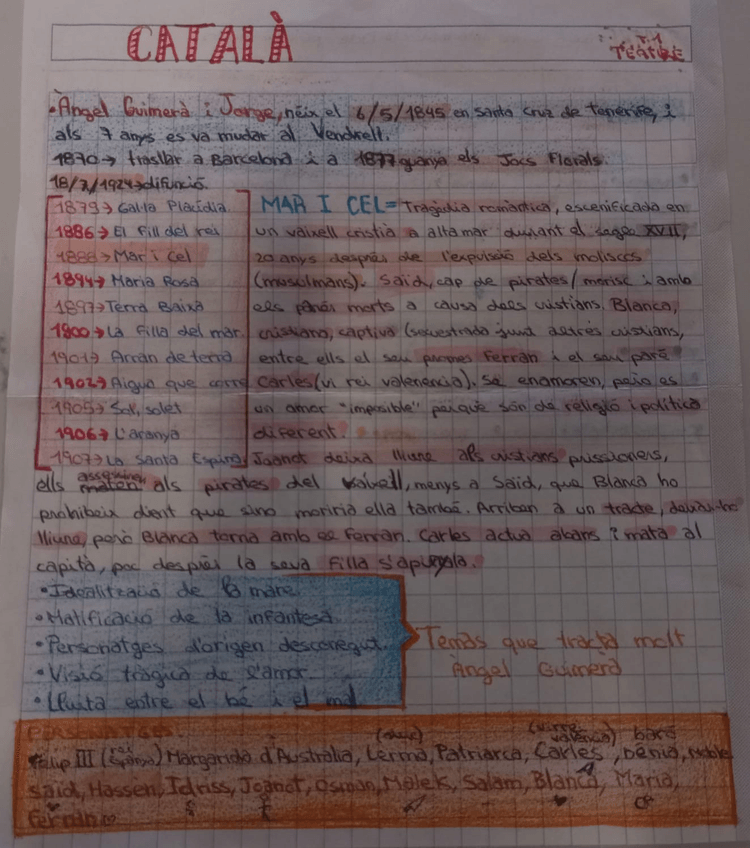 CATALÀ
T.1
TEATRE
·Àngel Guimerà i Jorge, néix el 6/5/1845 en santa cruz de tenerife, i
als 7 anys es va mudar al Vendrell.
1870→ trasllat a Barcelona i a 1877 guanya els Jocs Florals.
18/7/1924→difunció.
1879→ Gal·la Placídia
1886→ El fill del rei
1888→ Mar i cel
1894→ Maria Rosa
1897→Terra Baixa
1900→ La filla del mar
1901→ Arran de terra
1902→ Aigua que corre
1905→ Sol, solet
1906→ L'aranya
1907→ La Santa Espina
MAR I CEL= Tragèdia romàntica, escenificada en
un vaixell cristià a alta mar durant el segle XVII,
20 anys després de l'expulsió dels moliscos
(musulmans). Saïd, cap de pirates/morisc i amb
els pares morts a causa dels cristians. Blanca,
cristiana, captiva (secuestrada junt altres cristians,
entre ells el seu promes Ferran i el seu pare
Carles (vi rei valenencia). Se enamoren, pero es
un amor "imposible" perque són de religió i política
diferent.
Joanot deixa lliure als cristians prissioners,
ells assesinen als pirates del vaixell, menys a Saïd, que Blanca ho
prohibeix dient que sino moriria ella també. Arriben a un tracte,
lliure, però Blanca torna amb Ferran. Carles actua abans i mata al
capità, poc després la seva filla s'apunyala.
·Idealització de la mare
·Mitificació de la infantesa
·Personatges d'origen desconegut.
·Visió tràgica de l'amor.
·Lluita entre el bé i el mal
Temas que tracta molt
Àngel Guimerà
PERSONATGES:
Felip III (rei Espanya) Margarida d'Australia, Lerma, Patriarca, Carles (virrei València), baró dènia, noble
Saïd, Hassen, Idriss, Joanot, Osman, Malek, Salam, Blanca, Maria,
Ferran